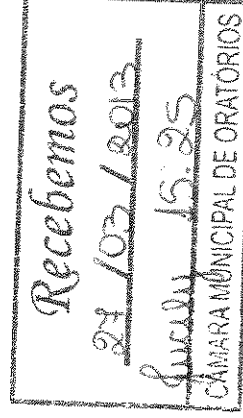 Recebemos
27 / 03 / 2013
15:25
CÂMARA MUNICIPAL DE ORATÓRIOS